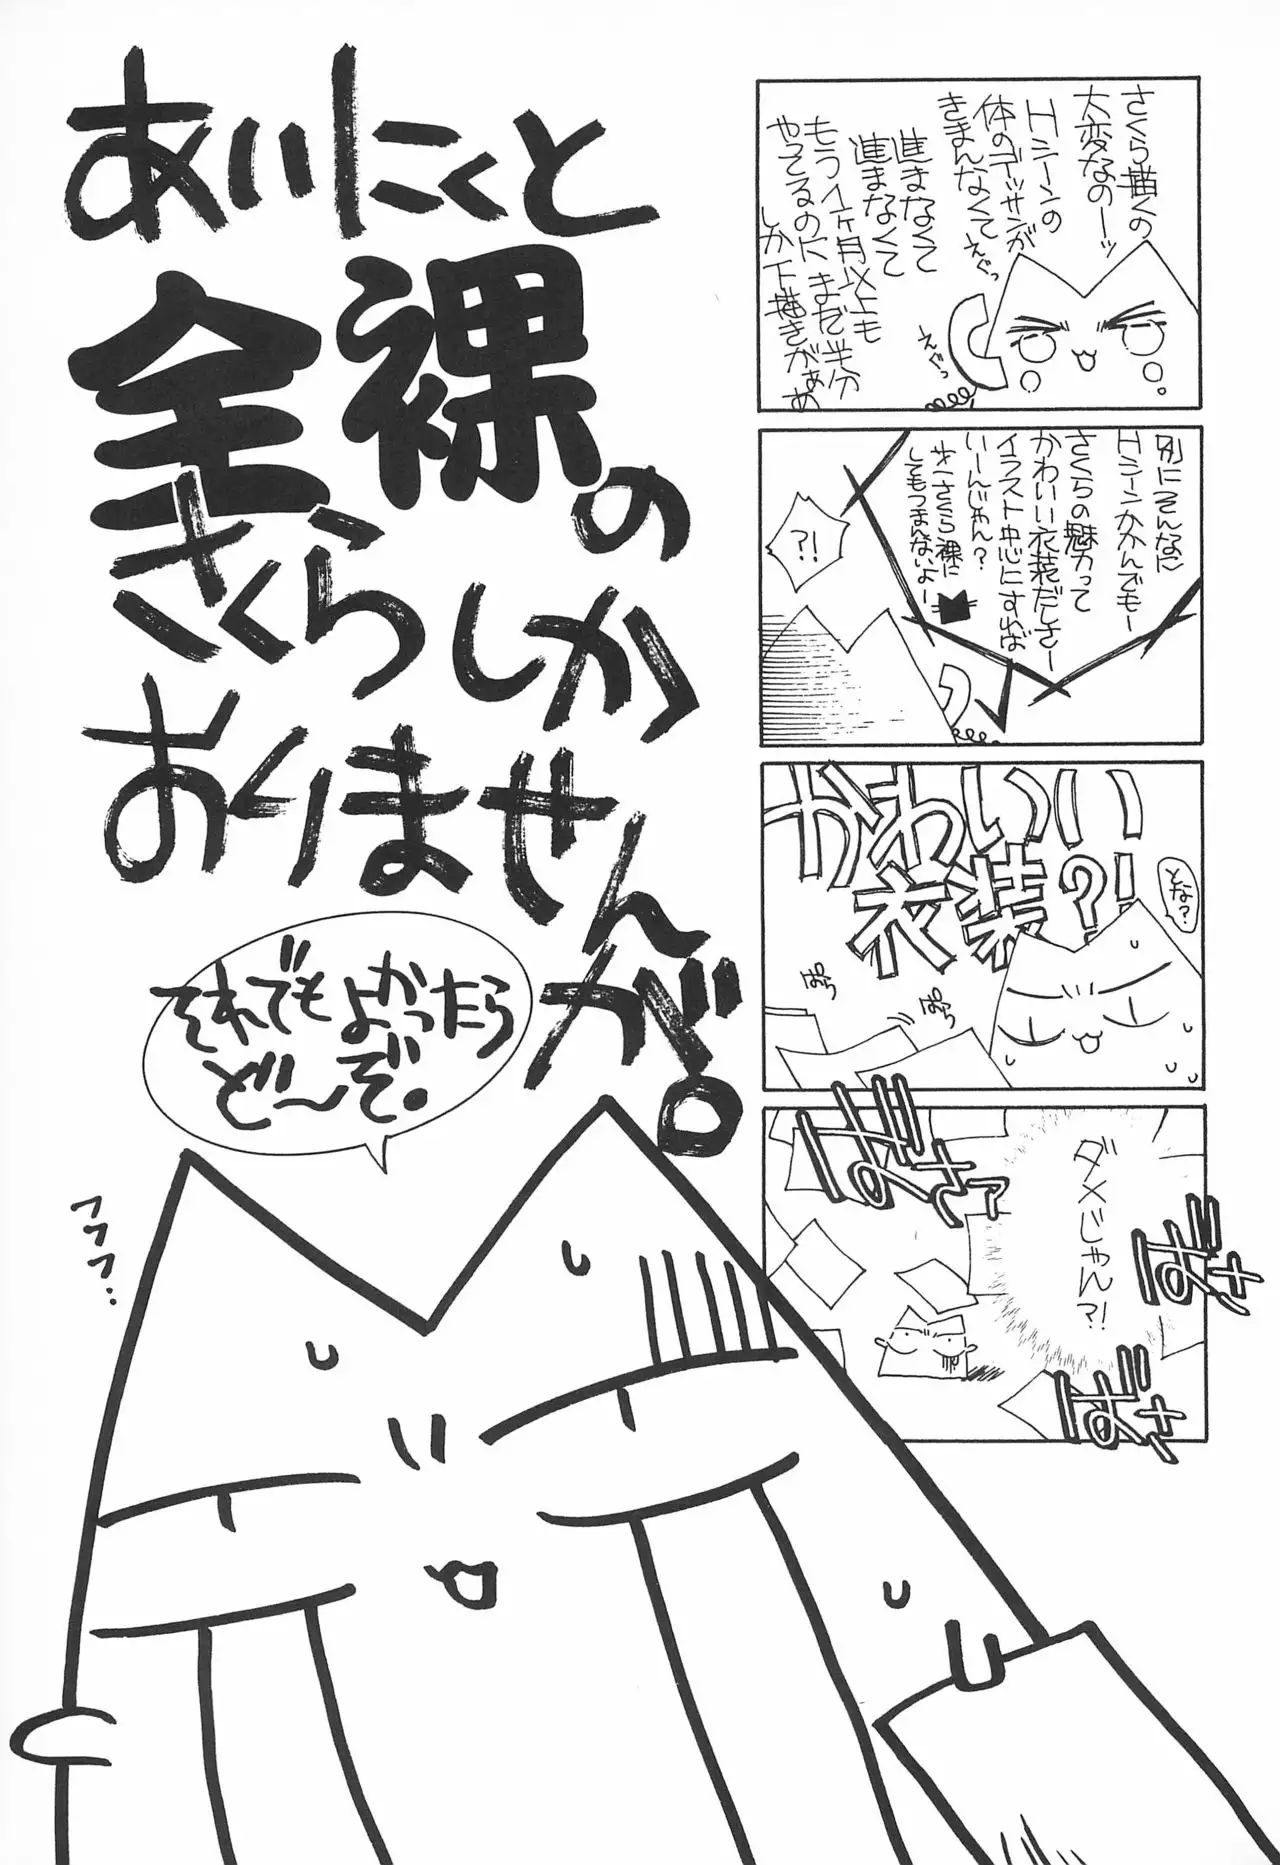 さくら描くの
大変なのーッ
Hシーンの
体のデッサンが
きまんなくて
進まなくて
進まなくて
もう1ヶ月以上も
やってるのにまだ半分
しか下描きがぁぁ
えぐっ
えぐっ
別にそんなに
Hシーンかかんでもー
さくらの魅力って
かわいい衣装だしさー
イラスト中心にすれば
いーんじゃん?
オーさくら裸に
してもつまんないよー
?!
かわいい
衣装?!
とな?
ぱらっ
ぱらっ
ダメじゃん?!
ばさァッ
ばさ
ばさ
あいにくと
全裸の
さくらしか
おりません
が。
それでもよかったら
ど〜ぞ。
フフフ…